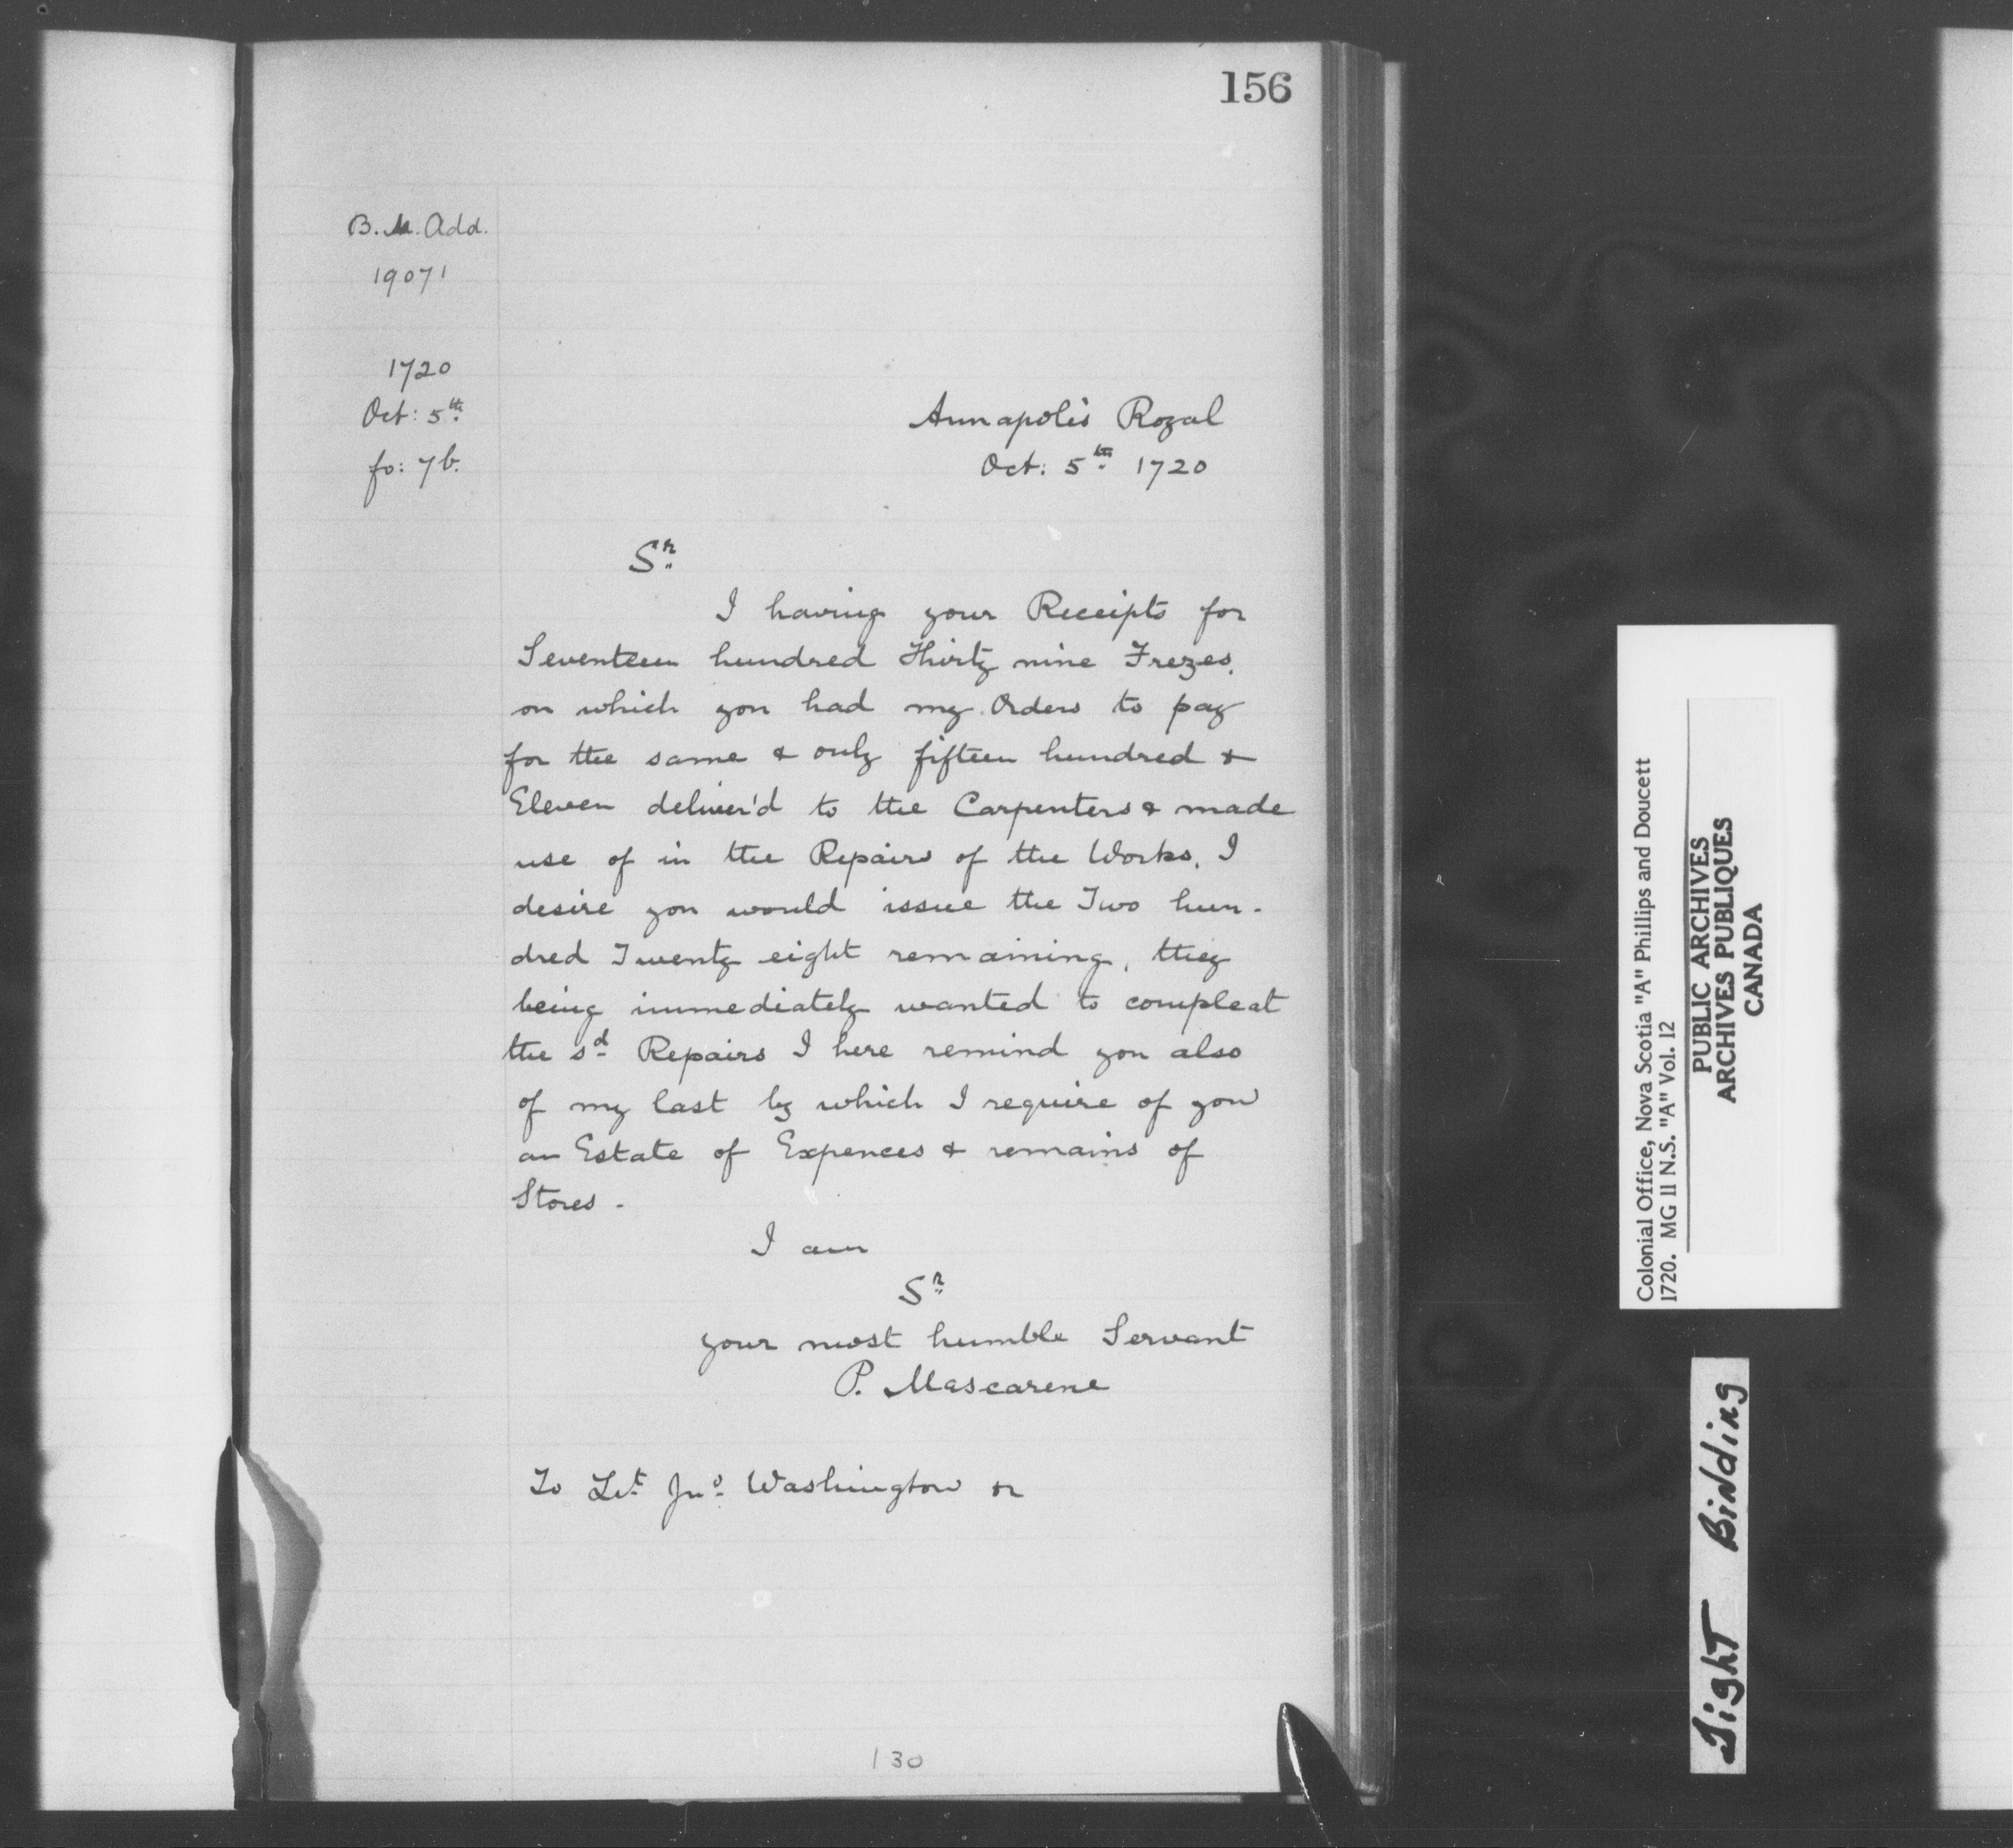 156
B. M. Add.
19071
1720
Oct: 5th
fo: 7b.
Annapolis Royal
Oct: 5th 1720
Sr
I having your Receipts for
Seventeen hundred Thirty nine Frezes,
on which you had my Orders to pay
for the same & only fifteen hundred &
Eleven deliver'd to the Carpenters & made
use of in the Repairs of the Works, I
desire you would issue the Two hun-
dred Twenty eight remaining, they
being immediately wanted to compleat
the sd Repairs I here remind you also
of my last by which I require of you
an Estate of Expences & remains of
Stores -
I am
Sr
your most humble Servant
P. Mascarene
To Lt Jno Washington or
130
Colonial Office, Nova Scotia "A" Phillips and Doucett
1720. MG 11 N.S. "A" Vol. 12
PUBLIC ARCHIVES
ARCHIVES PUBLIQUES
CANADA
Tight Binding